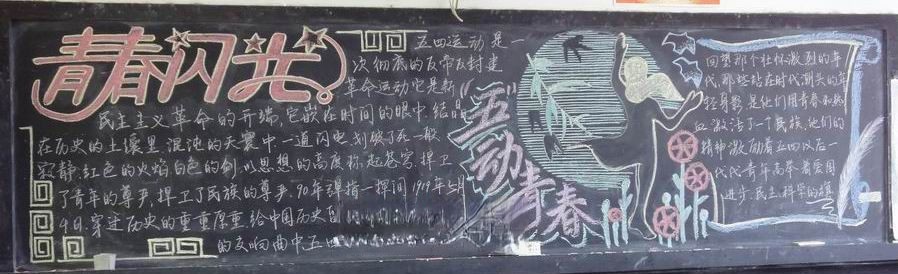 青春闪光
五四运动是一
次彻底的反帝反封建
革命运动它是新
民主主义革命的开端,它嵌在时间的眼中,结晶
在历史的土壤里,混沌的天寰中,一道闪电,划破了死一般
寂静;红色的火焰,白色的剑,以思想的高度撑起苍穹,捍卫
了青年的尊严,捍卫了民族的尊严,90年弹指一挥间,1919年5月
4日,穿过历史的重重厚重,给中国历史
的交响曲中五四
五动青春
回望那个壮怀激烈的年
代,那些站在时代潮头的年
轻身影,是他们用青春和热
血激活了一个民族,他们的
精神激励着五四以后一
代代青年高举着爱国
进步、民主、科学的旗